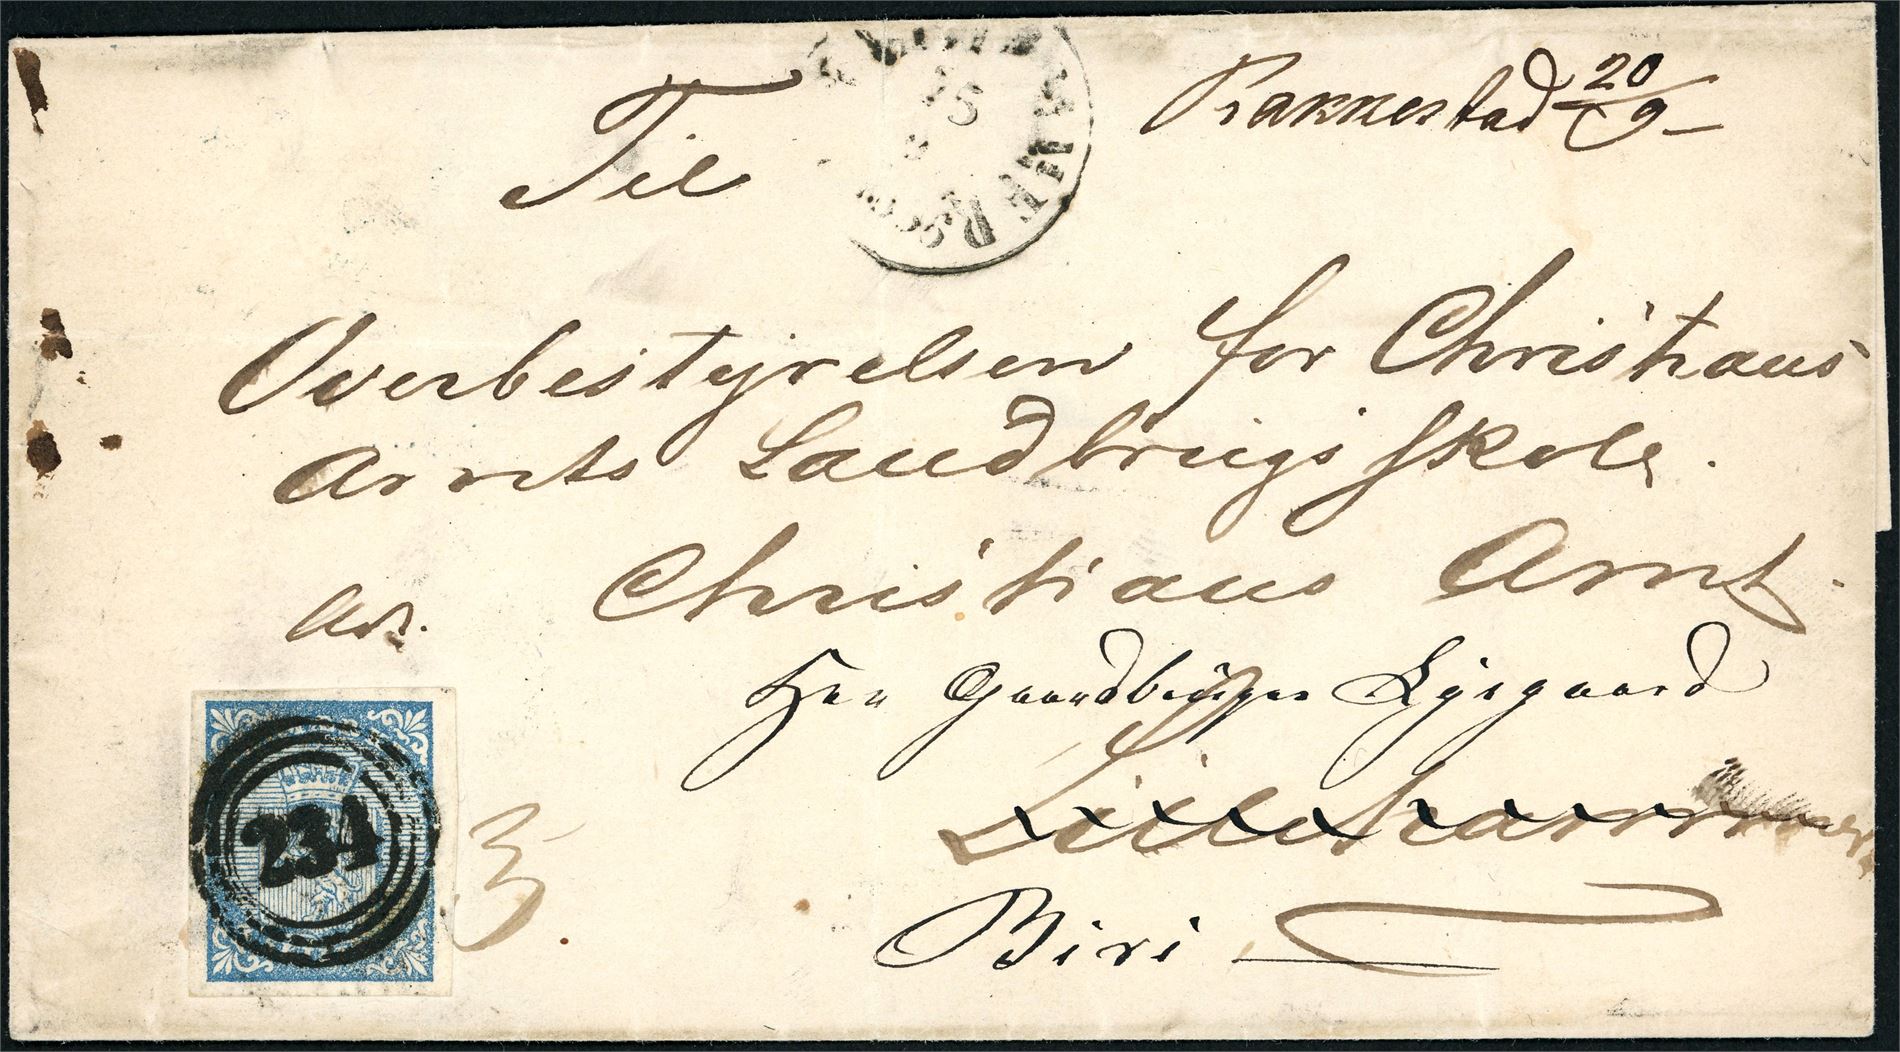 Rakkestad 20/9
Til
Overbestyrelsen for Christians
Amts Landbrugsskole.
Christians Amt.
Herr Gaardbruger Lysgaard
Lillehammer
Biri
234
3